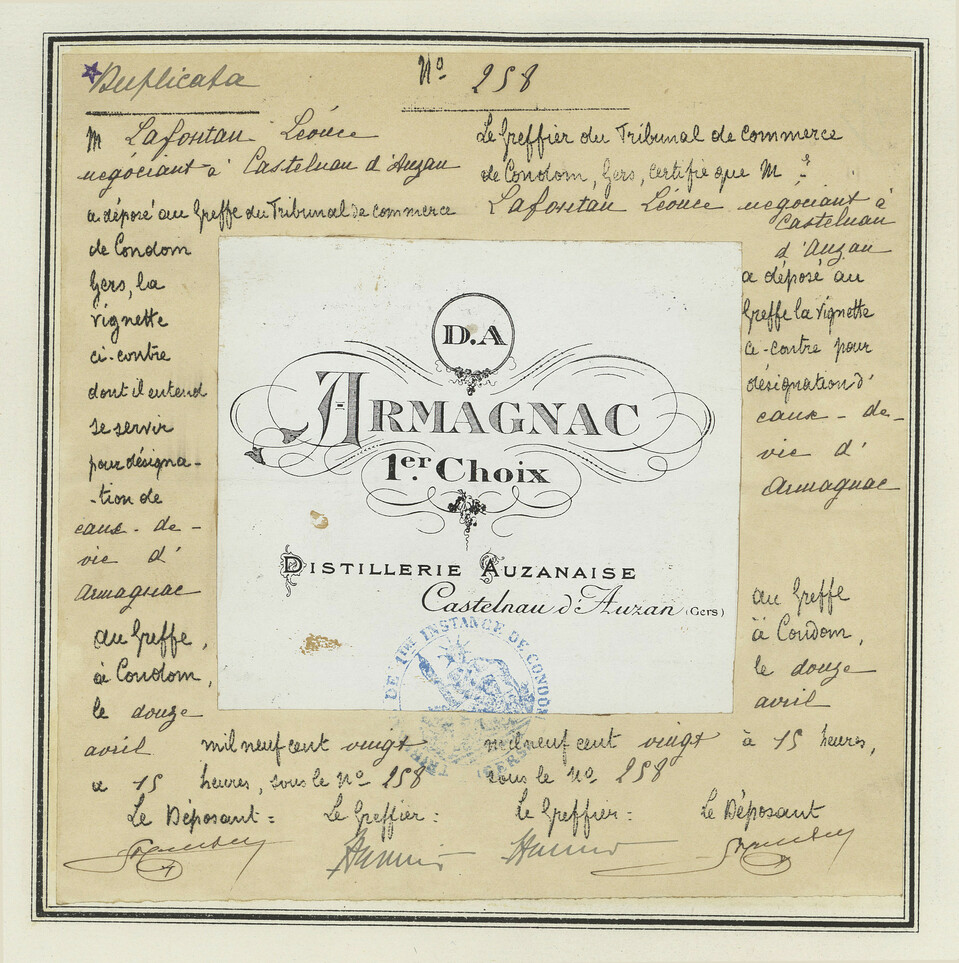 Duplicata
Nº 258
M Lafontan Léonce
négociant à Castelnau d'Auzan
a déposé au Greffe du Tribunal de Commerce
de Condom
Gers, la
vignette
ci-contre
dont il entend
se servir
pour désigna-
-tion de
eaux-de-
vie d'
Armagnac
au Greffe,
à Condom,
le douze
avril mil neuf cent vingt
a 15 heures, sous le Nº 258
Le Déposant: Le Greffier:
Le Greffier du Tribunal de Commerce
de Condom, Gers, certifie que M r
Lafontan Léonce négociant à
Castelnau
d'Auzan
a déposé au
Greffe la vignette
ci-contre pour
désignation d'
eaux-de-
vie d'
Armagnac
au Greffe
à Condom,
le douze
avril
mil neuf cent vingt à 15 heures,
sous le Nº 258
Le Greffier: Le Déposant
D.A
ARMAGNAC
1er. Choix
DISTILLERIE AUZANAISE
Castelnau d'Auzan (Gers)
DE 1ERE INSTANCE DE CONDOM
GERS